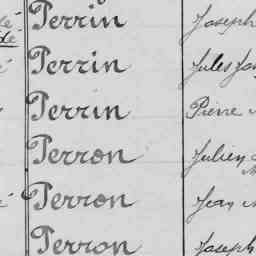 Perrin Joseph
Perrin Jules
Perrin Pierre
Perron Julien
Perron Jean
Perron Joseph